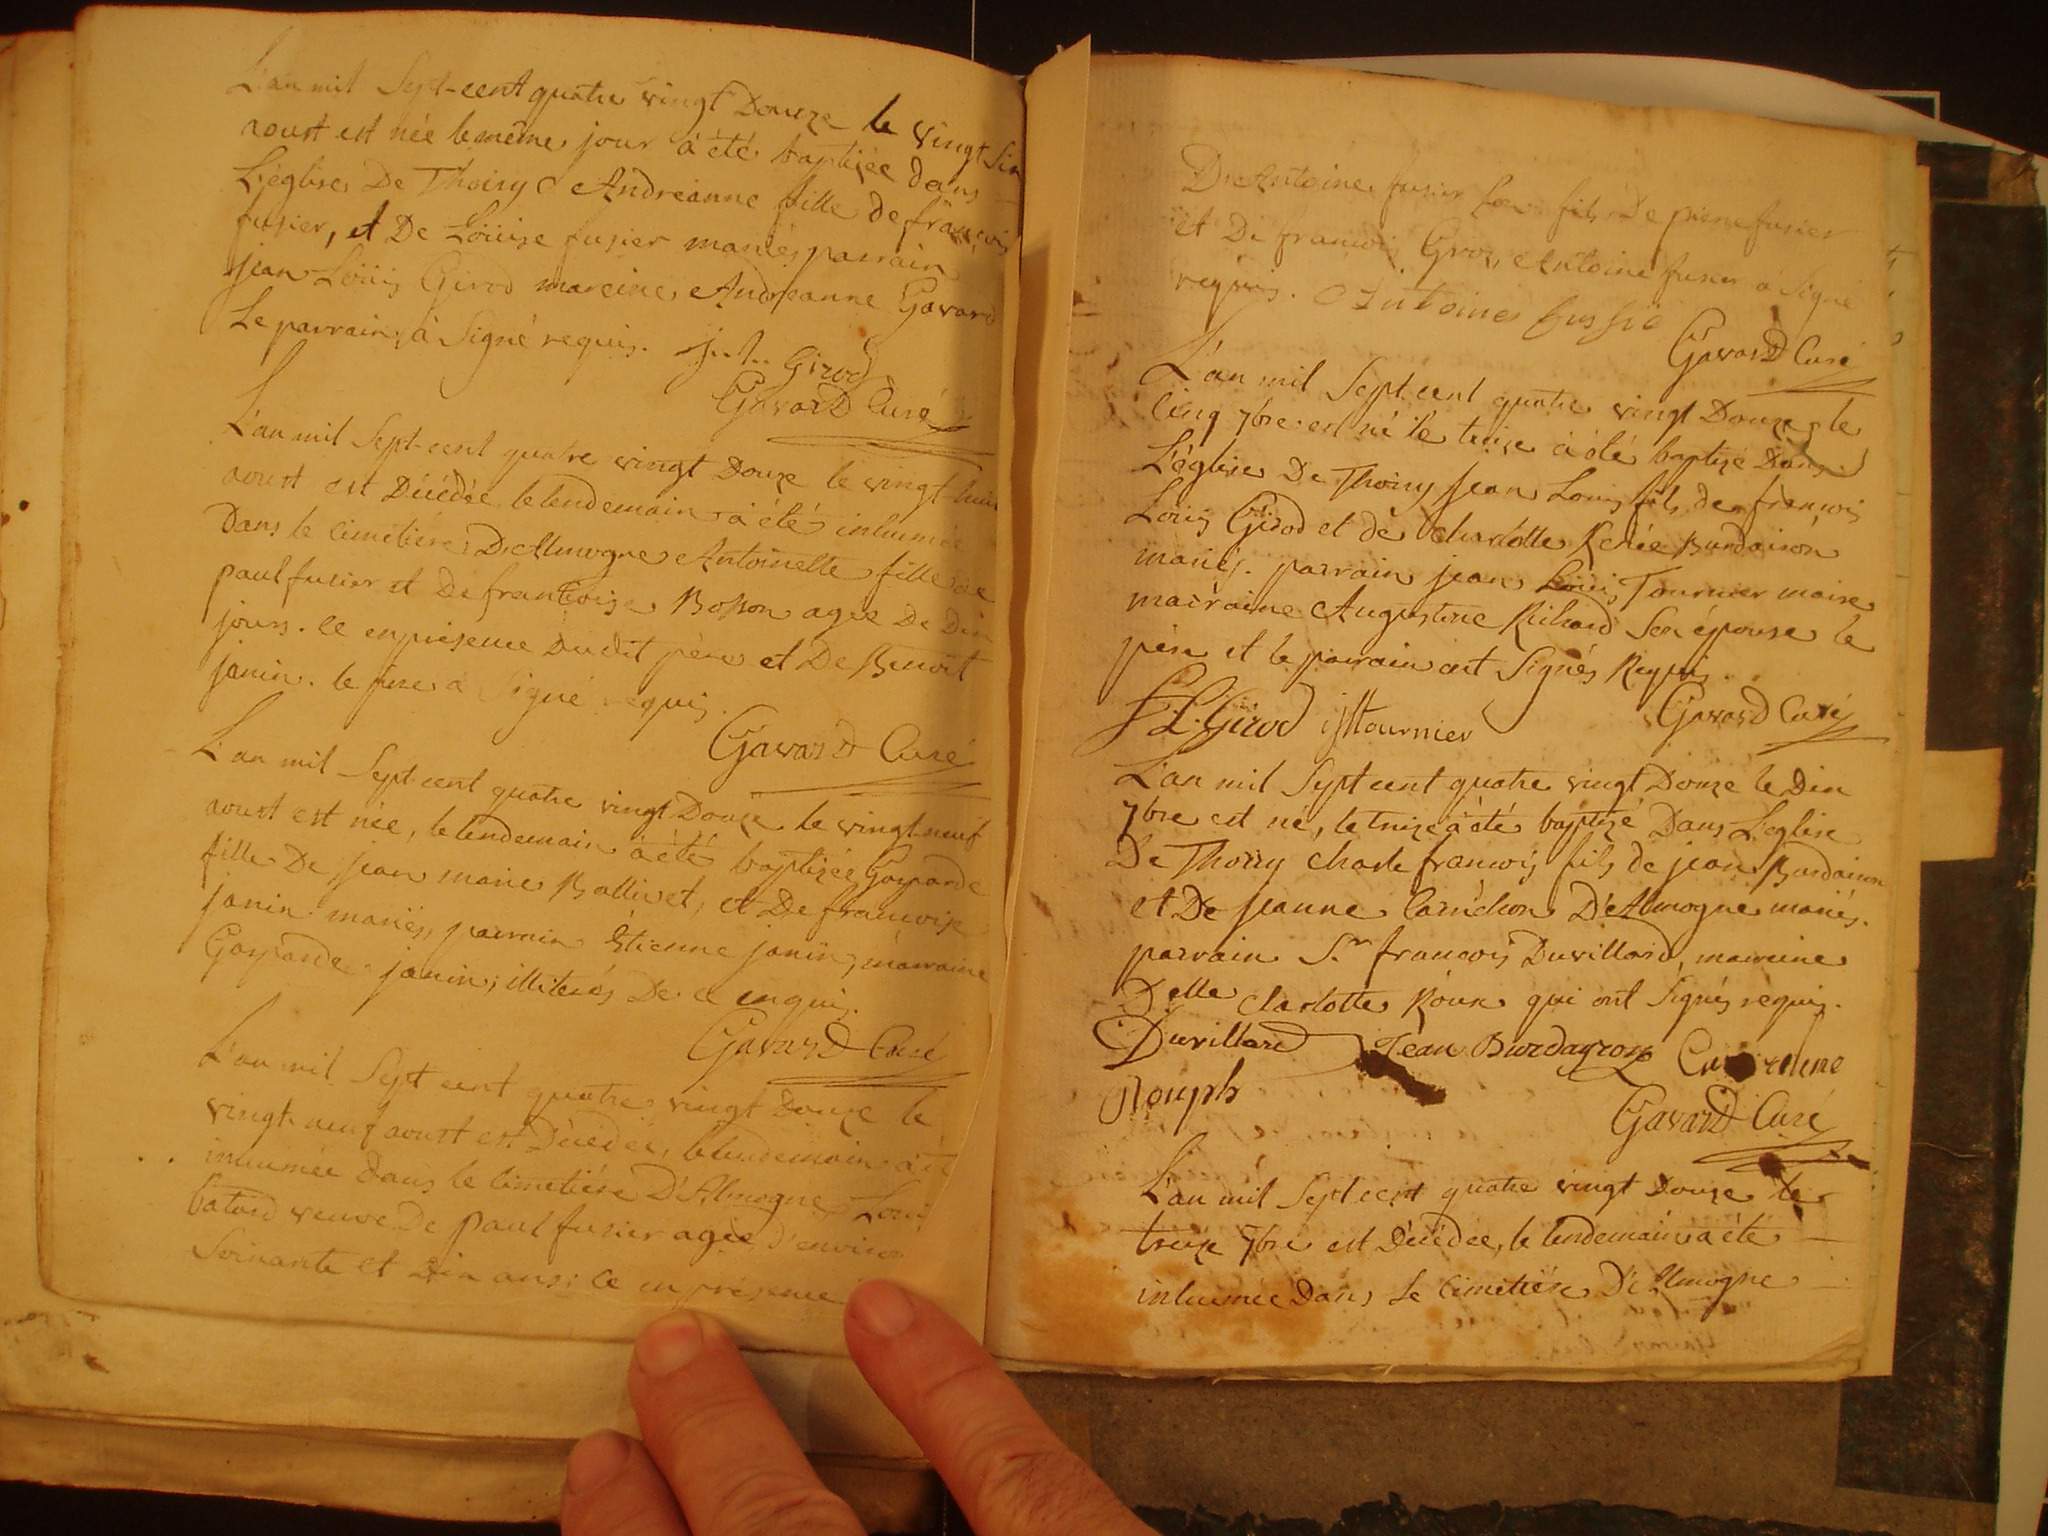 L'an mil Sept-cent quatre vingt Douze le vingt Six
aoust est née le même jour à été baptisée dans
L'église De Thoiry Andréanne fille de françois
fusier, et De Loüise fusier mariés, parrain
jean Loüis Girod mareine Andréanne Gavard
Le parrain à Signé requis. j. L. Girod
Gavard Curé
L'an mil Sept-cent quatre vingt Douze le vingt-huit
aoust est Décédée, le lendemain à été inhumée
Dans le Cimetière D'Allmogne Antoinette fille de
paul fusier et De françoise Bosson agée De Dix
jours. ce en présence Dudit père et De Benoît
janin. le père à Signé requis.
Gavard Curé
L'an mil Sept-cent quatre vingt Douze le vingt neuf
aoust est née, le lendemain à été baptisée Gasparde
fille De jean marie Ballivet, et De françoise
janin mariés, parrain Etienne janin, marraine
Gasparde janin; illiterés De ce enquis.
Gavard Curé
L'an mil Sept cent quatre vingt Douze le
vingt-neuf aoust est Décédée, le lendemain à été
inhumée Dans le Cimetière D'Almogne Loüise
batard veuve De paul fusier agée d'environ
Soixante et Dix ans: ce en présence
D'Antoine fusier fils De pierre fusier
et De françois Groz, Antoine fusier à Signé
requis. Antoine fussié
Gavard Curé
L'an mil Sept cent quatre vingt Douze, le
Cinq 7bre est né le treize à été baptisé Dans
L'église De Thoiry jean Louis fils de françois
Loüis Girod et de Charlotte Renée Burdairon
mariés. parrain jean Loüis Tournier maire
marraine Augustine Richard Son épouse le
père et le parrain ont Signés Requis.
f L. Girod jltournier Gavard Curé
L'an mil Sept cent quatre vingt Douze le Dix
7bre est né, le treize à été baptisé Dans L'église
De Thoiry Charle françois fils de jean Burdairon
et De jeanne Carrichon D'Allmogne mariés.
parrain Sr françois Duvillard, mareine
Delle Charlotte Roux qui ont Signés réquis.
Duvillard Jean Burdayron
Gavard Curé
L'an mil Sept cent quatre vingt Douze le
treize 7bre est Décédée, le lendemain à été
inhumée Dans Le Cimetière D'Allmogne